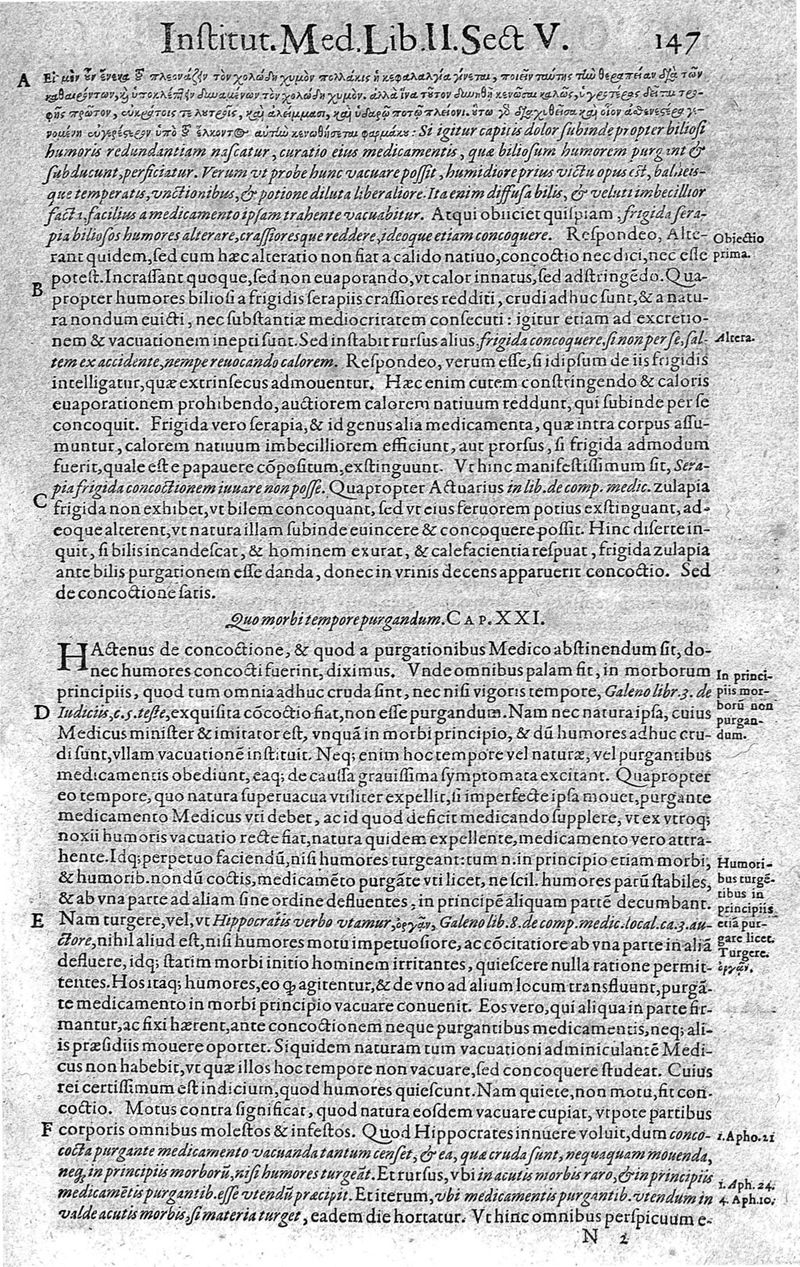 Inſtitut. Med. Lib. II. Sect V. 147
A Εἰ μὲν οὖν ἕνεκα τοῦ πλεονάζειν τὸν χολώδη χυμὸν πολλάκις ἡ κεφαλαλγία γίνεται, ποιεῖν ταύτης τὴν θεραπείαν διὰ τῶν
καθαιρόντων, καὶ ὑποκλέπτειν δυναμένων τὸν χολώδη χυμόν. ἀλλὰ ἵνα τοῦτον δυνηθῇ κενῶσαι καλῶς, ὑγροτέρας δεῖται τρο-
φῆς πρῶτον, εὐκράτοις τε λουτροῖς, καὶ ἀλείμμασι, καὶ ὑδαρῷ ποτῷ πλείονι. οὕτω γὰρ διαχυθεῖσα καὶ οἷον ἀσθενεστέρα γε-
νομένη εὐχερέστερον ὑπὸ τοῦ ἕλκοντος αὐτὴν κενωθήσεται φαρμάκου: Si igitur capitis dolor ſubinde propter bilioſi
humoris redundantiam naſcatur, curatio eius medicamentis, quæ bilioſum humorem purgant &
ſubducunt, perficiatur. Verum vt probe hunc vacuare poſſit, humidiore prius victu opus eſt, balneis-
que temperatis, vnctionibus, & potione diluta liberaliore. Ita enim diffuſa bilis, & veluti imbecillior
facta, facilius a medicamento ipſam trahente vacuabitur. Atqui obiiciet quiſpiam, frigida ſera-
pia bilioſos humores alterare, craſſioresque reddere, ideoque etiam concoquere. Reſpondeo, Alte-
Obiectio
rant quidem, ſed cum hæc alteratio non fiat a calido natiuo, concoctio nec dici, nec eſſe
prima.
poteſt. Incraſſant quoque, ſed non euaporando, vt calor innatus, ſed adſtringẽdo. Qua-
B propter humores bilioſi a frigidis ſerapiis craſſiores redditi, crudi adhuc ſunt, & a natu-
ra nondum euicti, nec ſubſtantiæ mediocritatem conſecuti: igitur etiam ad excretio-
nem & vacuationem inepti ſunt. Sed inſtabit rurſus alius, frigida concoquere, ſi non per ſe, ſal-
Altera.
tem ex accidente, nempe reuocando calorem. Reſpondeo, verum eſſe, ſi id ipſum de iis frigidis
intelligatur, quæ extrinſecus admouentur. Hæc enim cutem conſtringendo & caloris
euaporationem prohibendo, auctiorem calorem natiuum reddunt, qui ſubinde per ſe
concoquit. Frigida vero ſerapia, & id genus alia medicamenta, quæ intra corpus aſſu-
muntur, calorem natiuum imbecilliorem efficiunt, aut prorſus, ſi frigida admodum
fuerit, quale eſt e papauere cõpoſitum, exſtinguunt. Vt hinc manifeſtiſſimum ſit, Sera-
pia frigida concoctionem iuuare non poſſe. Quapropter Actuarius in lib. de comp. medic. zulapia
C frigida non exhibet, vt bilem concoquant, ſed vt eius feruorem potius exſtinguant, ad-
eoque alterent, vt natura illam ſubinde euincere & concoquere poſſit. Hinc diſerte in-
quit, ſi bilis incandeſcat, & hominem exurat, & calefacientia reſpuat, frigida zulapia
ante bilis purgationem eſſe danda, donec in vrinis decens apparuerit concoctio. Sed
de concoctione ſatis.
Quo morbi tempore purgandum. CAP. XXI.
HActenus de concoctione, & quod a purgationibus Medico abſtinendum ſit, do-
nec humores concocti fuerint, diximus. Vnde omnibus palam fit, in morborum
principiis, quod tum omnia adhuc cruda ſint, nec niſi vigoris tempore, Galeno libr. 3. de
D Iudiciis, c. 5. teſte, exquiſita cõcoctio fiat, non eſſe purgandum. Nam nec natura ipſa, cuius
In princi-
piis mor-
borũ non
purgan-
dum.
Medicus miniſter & imitator eſt, vnquã in morbi principio, & dũ humores adhuc cru-
di ſunt, vllam vacuationẽ inſtituit. Neq; enim hoc tempore vel naturæ, vel purgantibus
medicamentis obediunt, eaq; de cauſſa grauiſſima ſymptomata excitant. Quapropter
eo tempore, quo natura ſuperuacua vtiliter expellit, ſi imperfecte ipſa mouet, purgante
medicamento Medicus vti debet, ac id quod deficit medicando ſupplere, vt ex vtroq;
noxii humoris vacuatio recte fiat, natura quidem expellente, medicamento vero attra-
hente. Idq; perpetuo faciendũ, niſi humores turgeant: tum n. in principio etiam morbi,
& humorib. nondũ coctis, medicamẽto purgãte vti licet, ne ſcil. humores parũ ſtabiles,
& ab vna parte ad aliam ſine ordine defluentes, in principẽ aliquam partẽ decumbant.
Humori-
bus turgẽ-
tibus in
principiis
etiã pur-
gare licet.
Turgere.
ὀργᾶν.
E Nam turgere, vel, vt Hippocratis verbo vtamur, ὀργᾶν, Galeno lib. 8. de comp. medic. local. ca. 3. au-
ctore, nihil aliud eſt, niſi humores motu impetuoſiore, ac cõcitatiore ab vna parte in aliã
defluere, idq; ſtatim morbi initio hominem irritantes, quieſcere nulla ratione permit-
tentes. Hos itaq; humores, eo q agitentur, & de vno ad alium locum transfluunt, purgã-
te medicamento in morbi principio vacuare conuenit. Eos vero, qui aliqua in parte fir-
mantur, ac fixi hærent, ante concoctionem neque purgantibus medicamentis, neq; ali-
is præſidiis mouere oportet. Siquidem naturam tum vacuationi adminiculantẽ Medi-
cus non habebit, vt quæ illos hoc tempore non vacuare, ſed concoquere ſtudeat. Cuius
rei certiſſimum eſt indicium, quod humores quieſcunt. Nam quiete, non motu, fit con-
coctio. Motus contra ſignificat, quod natura eoſdem vacuare cupiat, vtpote partibus
F corporis omnibus moleſtos & infeſtos. Quod Hippocrates innuere voluit, dum conco-
1. Apho. 21
cta purgante medicamento vacuanda tantum cenſet, & ea, quæ cruda ſunt, nequaquam mouenda,
neq, in principiis morborũ, niſi humores turgeãt. Et rurſus, vbi in acutis morbis raro, & in principiis
1. Aph. 24.
medicamẽtis purgantib. eſſe vtendũ præcipit. Et iterum, vbi medicamentis purgantib. vtendum in
4. Aph. 10.
valde acutis morbis, ſi materia turget, eadem die hortatur. Vt hinc omnibus perſpicuum e-
N 2